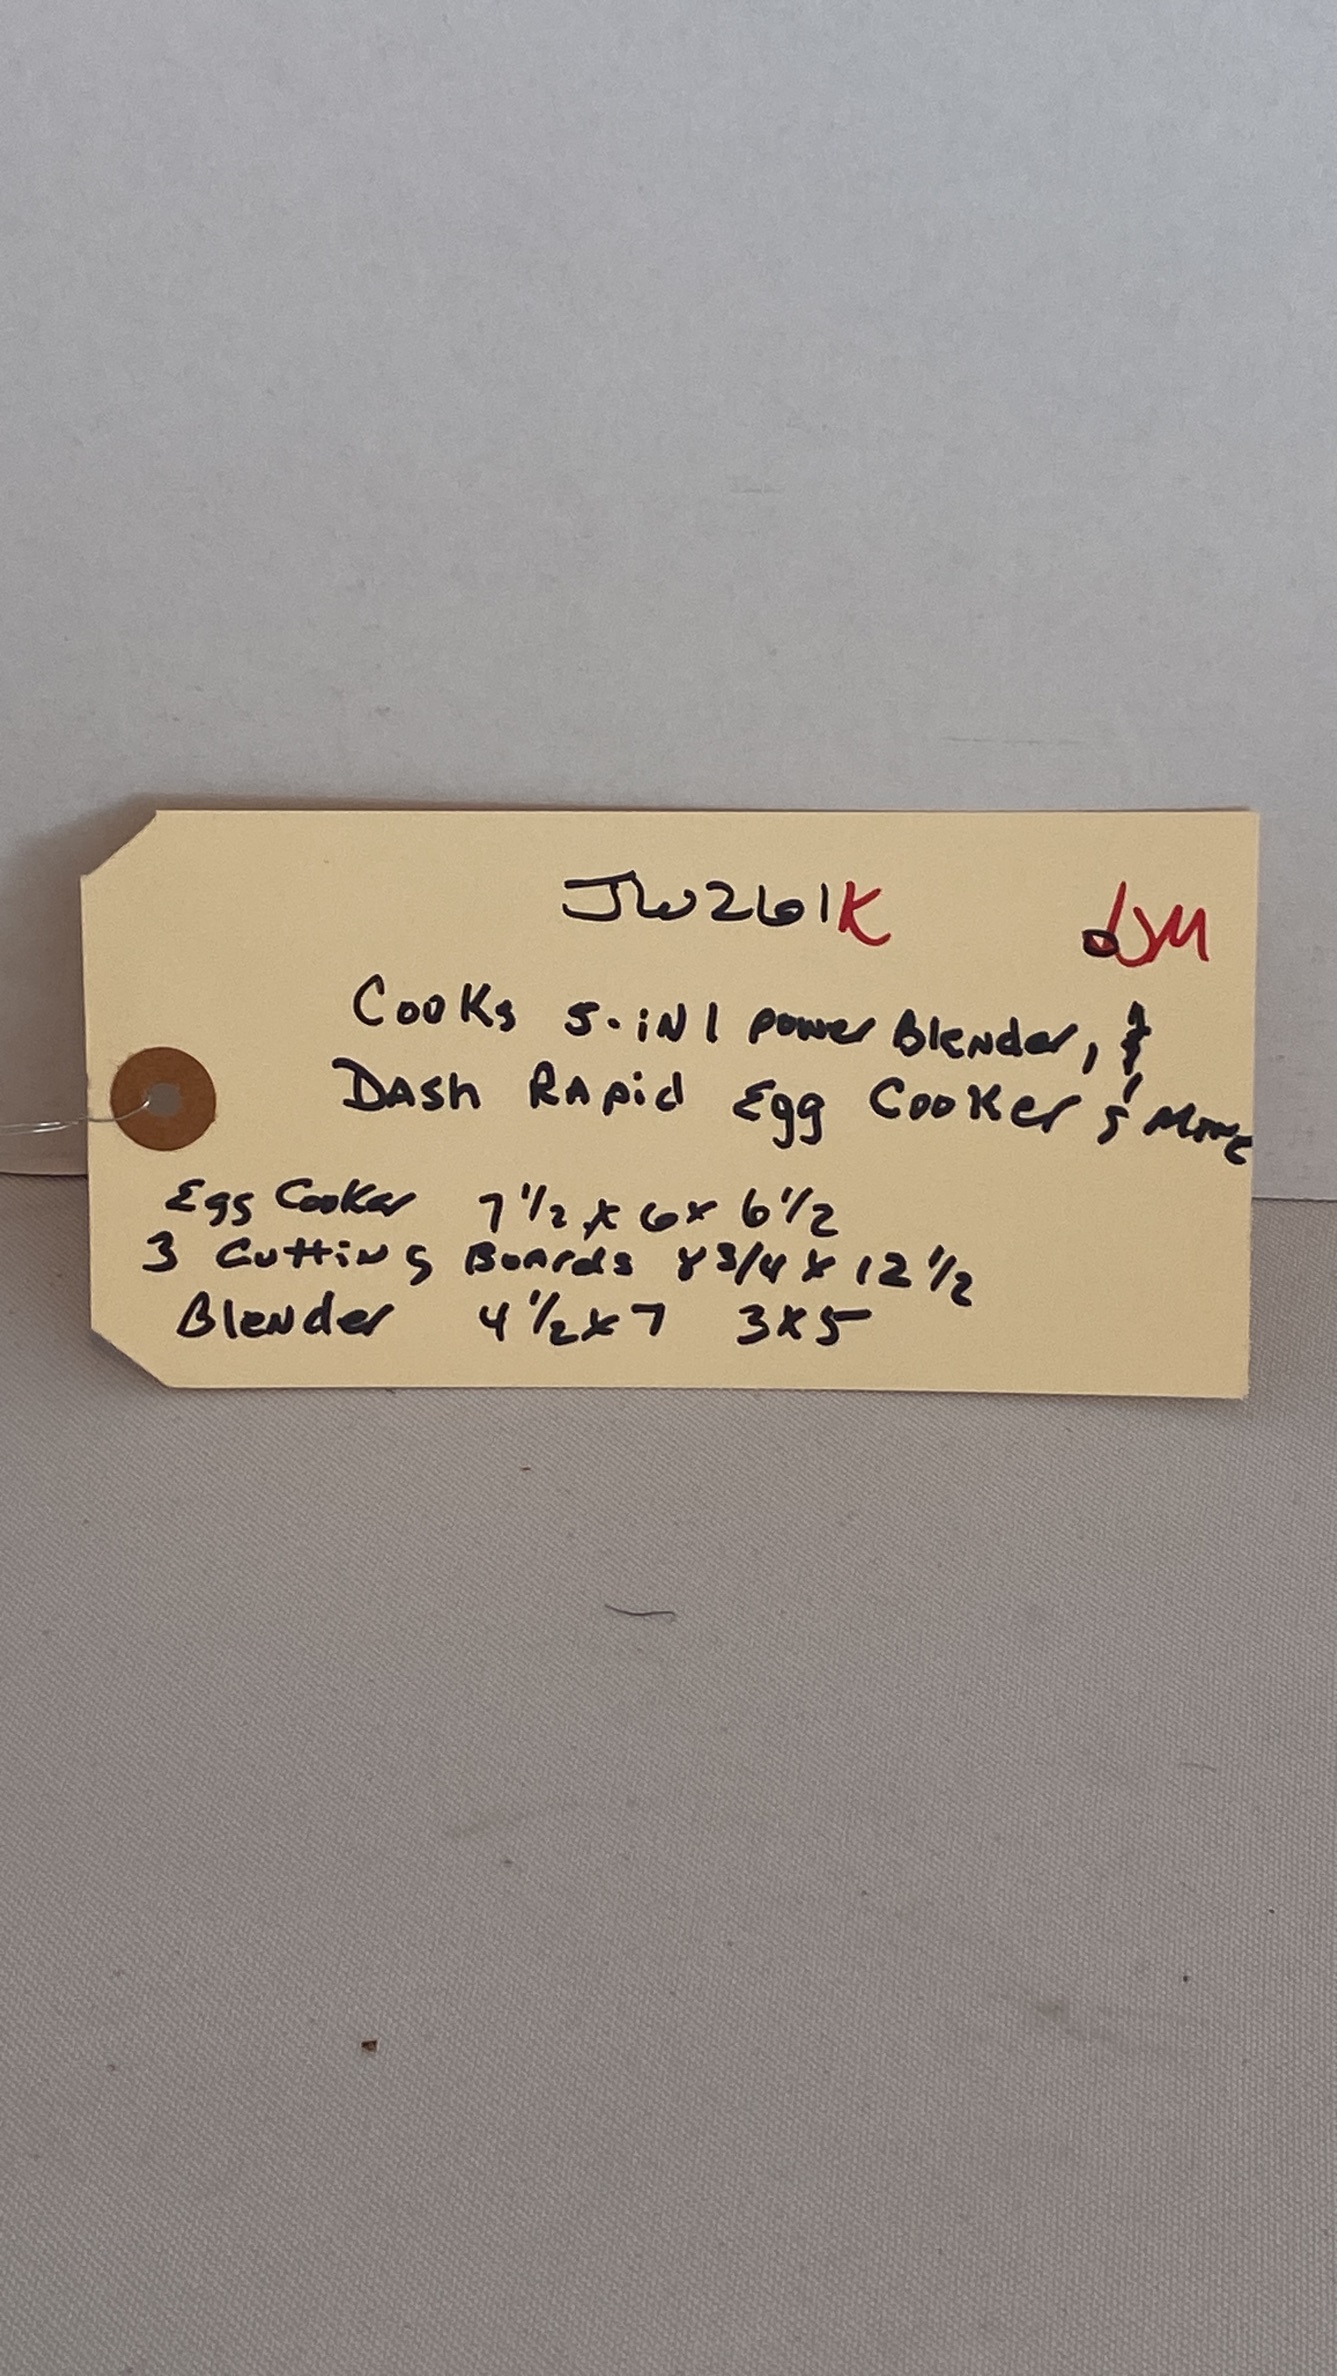 JW261K JM
Cooks 5-in 1 power Blender, &
Dash Rapid Egg Cooker & More
Egg Cooker 7 1/2 x 6 x 6 1/2
3 Cutting Boards 8 3/4 x 12 1/2
Blender 4 1/2 x 7 3x5